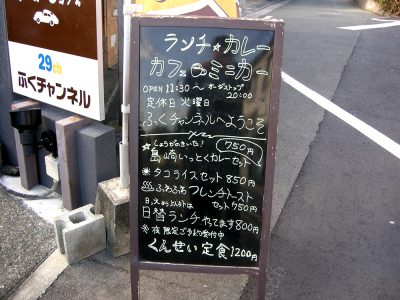 29ch
ふくチャンネル
ランチ☆カレー
カフェミニカー
OPEN 11:30～オーダーストップ20:00
定休日 火曜日
ふくチャンネルへようこそ
しょうがのきいた! 750円
☆島崎いっとくカレーセット
タコライスセット 850円
ふわふわフレンチトースト
セット 750円
日替ランチやってます 800円
※夜限定ご予約受付中
くんせい定食 1200円